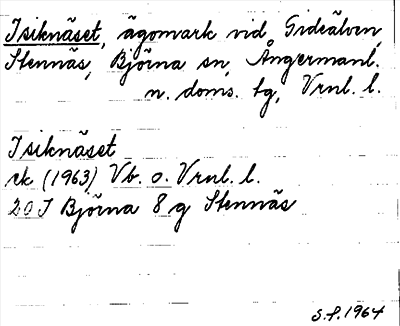 Isiknäset, ägomark vid Gideälven,
Stennäs, Björna sn, Ångermanl.
n. doms. tg, Vrnl. l.
Isiknäset
ek (1963) Vb. o. Vrnl. l.
20 I Björna 8 g Stennäs
S.f. 1964